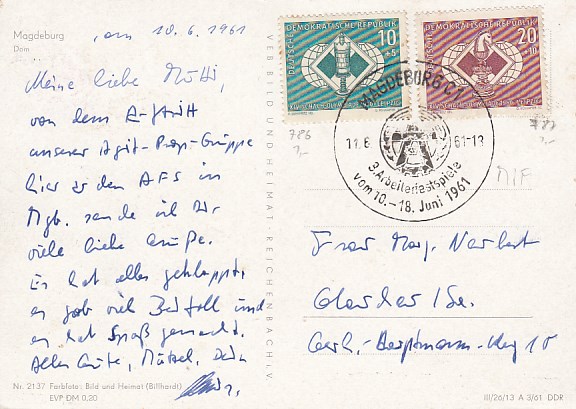 Magdeburg
Dom
am 10.6.1961
Meine liebe Mutti,
von dem Auftritt
unserer Agit-Prop-Gruppe
hier zu den AFS in
Mgb. sende ich Dir
viele liebe Grüße.
Es hat alles geklappt,
es gab viel Beifall und
es hat Spaß gemacht.
Alles Gute, Dein
Nr. 2137 Farbfoto: Bild und Heimat (Billhardt)
EVP DM 0,20
VEB BILD UND HEIMAT REICHENBACH i. V
DEUTSCHE DEMOKRATISCHE REPUBLIK
10
+5
DEUTSCHE DEMOKRATISCHE REPUBLIK
20
+10
MAGDEBURG C1
11.6
61-13
3. Arbeiterfestspiele
vom 10.-18. Juni 1961
786
787
MIF
Frau Marg. Norbert
Gerh.-Hauptmann-Weg 10
III/26/13 A 3/61 DDR